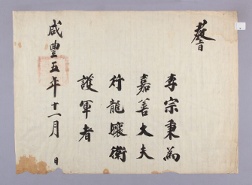 敎旨
李宗秉爲
嘉善大夫
行龍驤衛
護軍者
咸豊五年十一月　日